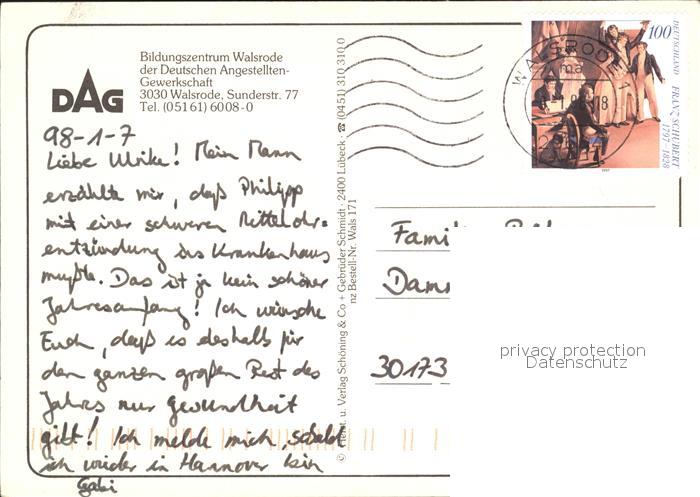 Bildungszentrum Walsrode
der Deutschen Angestellten-
Gewerkschaft
3030 Walsrode, Sunderstr. 77
Tel. (05161) 6008-0
DAG
98-1-7
Liebe Ulrike! Mein Mann
erzählte mir, daß Philipp
mit einer schweren Mittelohr-
entzündung ins Krankenhaus
mußte. Das ist ja kein schöner
Jahresanfang! Ich wünsche
Euch, daß es deshalb für
den ganzen großen Rest des
Jahres nur Gesundheit
gibt! Ich melde mich, sobald
ich wieder in Hannover bin
Gabi
© Herst. u. Verlag Schöning & Co + Gebrüder Schmidt · 2400 Lübeck · ☎ (0451) 310 310 0
nz Bestell-Nr. Wals 171
WALSRODE 1
18
100
DEUTSCHLAND
FRANZ SCHUBERT
1797-1828
1997
Fami
Dam
30173
privacy protection
Datenschutz